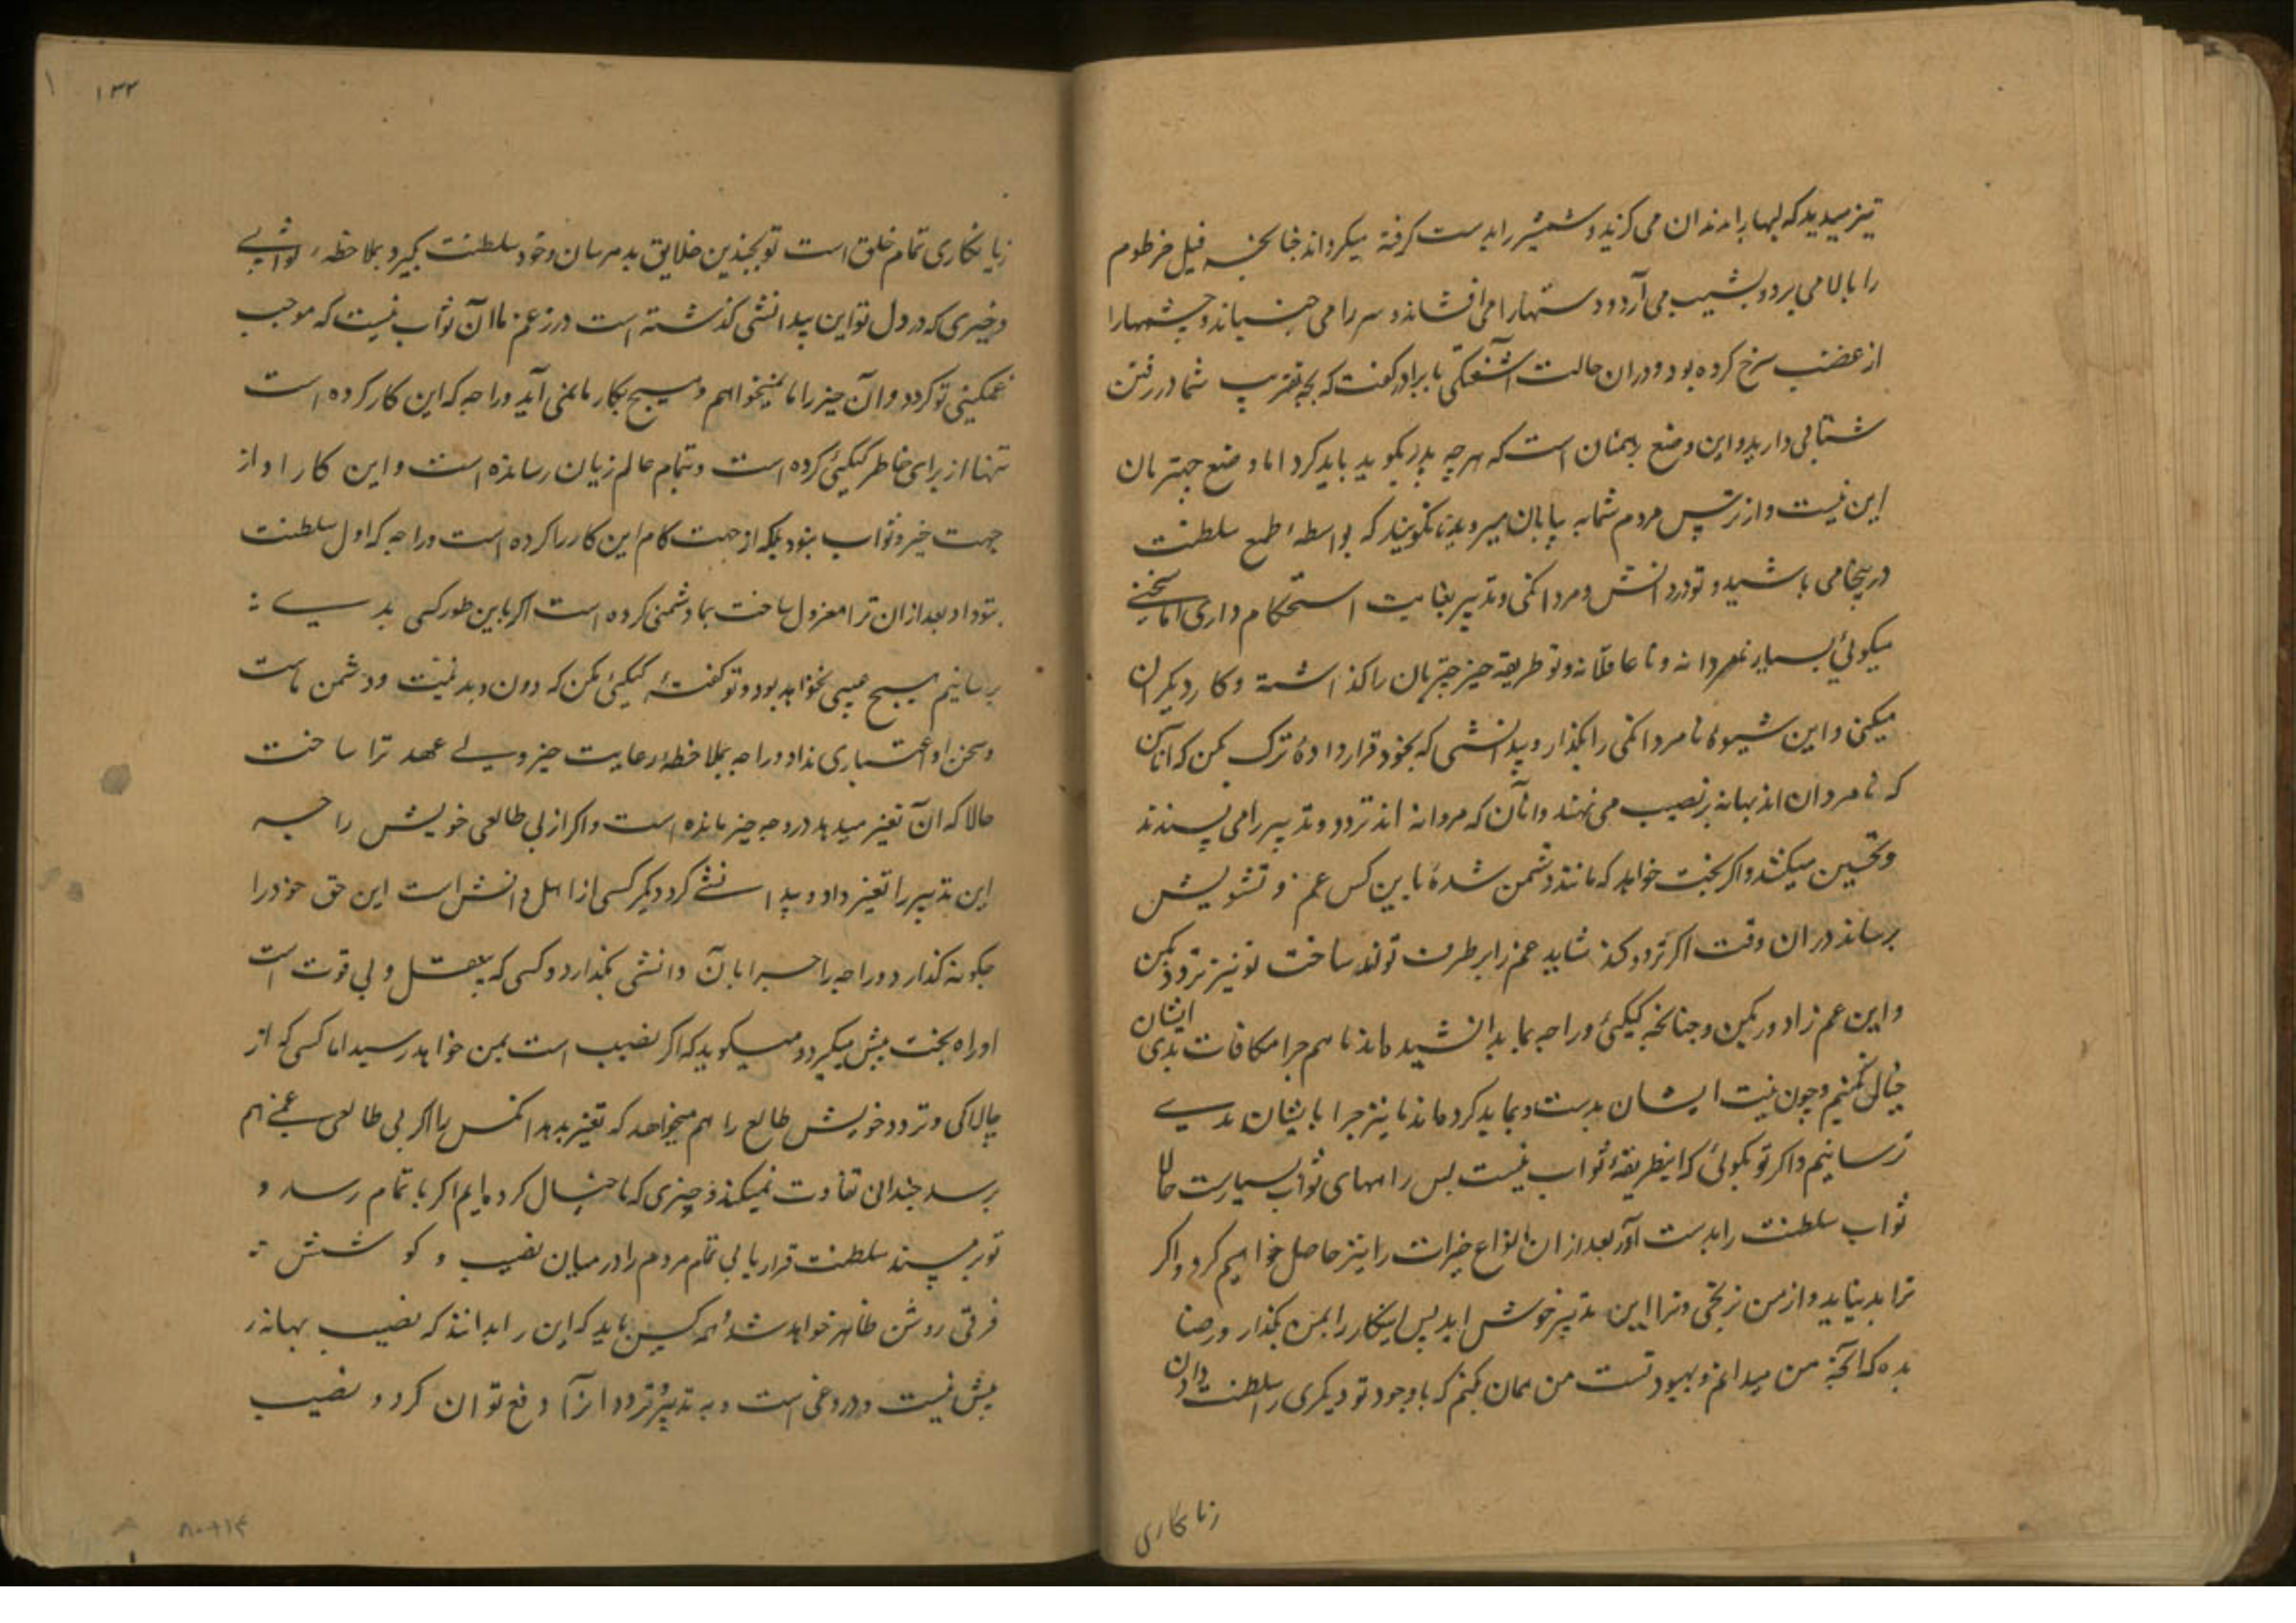 تیز میدید که لبها را بدندان می گزید و شمشیر را بدست گرفته میگرداند چنانچه فیل خرطوم
را بالا می برد و بشیب می آرد و دستها را می افشاند و سر را می جنباند و چشمها را
از غضب سرخ کرده بود و دران حالت آشفتگی با برادر گفت که بچه تقریب شما در رفتن
شتابی دارید و این وضع برهمنان است که هر چه پدر بگوید باید کرد اما وضع چهتریان
این نیست و از ترس مردم شما به بیابان میروید تا نگویند که بواسطهٔ طمع سلطنت
در پیجا می باشید و تو در دانش و مردانگی و تدبیر بغایت استحکام داری اما سخنی
میگوئی بسیار نامردانه و نا عاقلانه و تو طریقه خیر چتریان را گذاشته و کار دیگران
میکنی و این شیوهٔ نامردانگی را بگذار و بیدانشی که بخود قرار دادهٔ ترک کن که آنان
که نامردان اند بهانه بر نصیب می نهند و آنان که مردانه اند تردد و تدبیر را می پسندند
و تحسین میکنند و اگر بخت خواهد که مانند دشمن شده باین کس غم و تشویش
برساند دران وقت اگر تردد کند شاید غم را بر طرف تواند ساخت تو نیز تردد بکن
و این غم را دور بکن و چنانچه کیکیئ و راجه بما بد اندیشیده اند ما هم چرا مکافات بدی ایشان
خیال نکنیم و چون نیت ایشان بدست و بما بد کرده اند ما نیز چرا بایشان بدی
نرسانیم و اگر تو بگوئی که اینطریقهٔ ثواب نیست پس راههای ثواب بسیارست حالا
ثواب سلطنت را بدست آور بعد از ان انواع خیرات را نیز حاصل خواهیم کرد و اگر
ترا بد بنماید و از من نرنجی و ترا این تدبیر خوش اید پس اینکار را بمن بگذار و رضا
بده که آنچه من میدانم و بهبود تست من همان بکنم که با وجود تو دیگری را سلطنت دادن
زیانکاری
۱۳۳
زیانکاری تمام خلق است تو بچندین خلایق بد مرسان و خود سلطنت بگیر و بملاحظهٔ ثوابی
و خیری که در دل تو این بیدانشی گذشته است در زعم ما آن ثواب نیست که موجب
غمگینی تو گردد و آن چیز را ما نمیخواهم و هیچ بکار ما نمی آید و راجه که این کار کرده است
تنها از برای خاطر کیکیئ کرده است و بتمام عالم زیان رسانده است و این کار را و از
جهت خیر و ثواب نبود بلکه از جهت کام این کار را کرده است و راجه که اول سلطنت
بتو داد و بعد از ان ترا معزول ساخت بما دشمنی کرده است اگر باین طور کسی بدی
برسانیم هیچ عیبی نخواهد بود و تو گفتهٔ کیکیئ مکن که دون و بد نیت و دشمن ماست
و سخن او اعتباری ندارد و راجه بملاحظهٔ رعایت خیر ولی عهد ترا ساخت
حالا که آن تغیر میدهد در وجه خیر مانده است و اگر از بی طالعی خویش راجه
این تدبیر را تغیر داد و بیدانشی کرد دیگر کسی از اهل دانش است این حق خود را
چگونه گذارد و راجه را چرا بآن دانشی بگذارد و کسی که بیعقل و بی قوت است
او راه بخت پیش میگیرد و میگوید که اگر نصیب است بمن خواهد رسید اما کسی که از
چالاکی و تردد خویش طالع را هم میخواهد که تغیر بدهد آنکس را اگر بی طالعی غمی هم
برسد چندان تفاوت نمیکند و چیزی که ما خیال کرده ایم اگر با تمام رسد و
تو بر مسند سلطنت قرار یابی تمام مردم را در میان نصیب و کوشش
فرقی روشن ظاهر خواهد شد همه کس باید که این را بدانند که نصیب بهانهٔ
بیش نیست و دروغی است و به تدبیر و تردد آنرا دفع توان کرد و نصیب